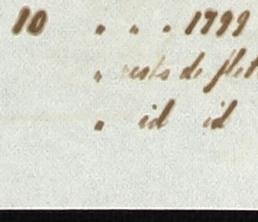 10 " " " 1799
" resto de flet
" id id